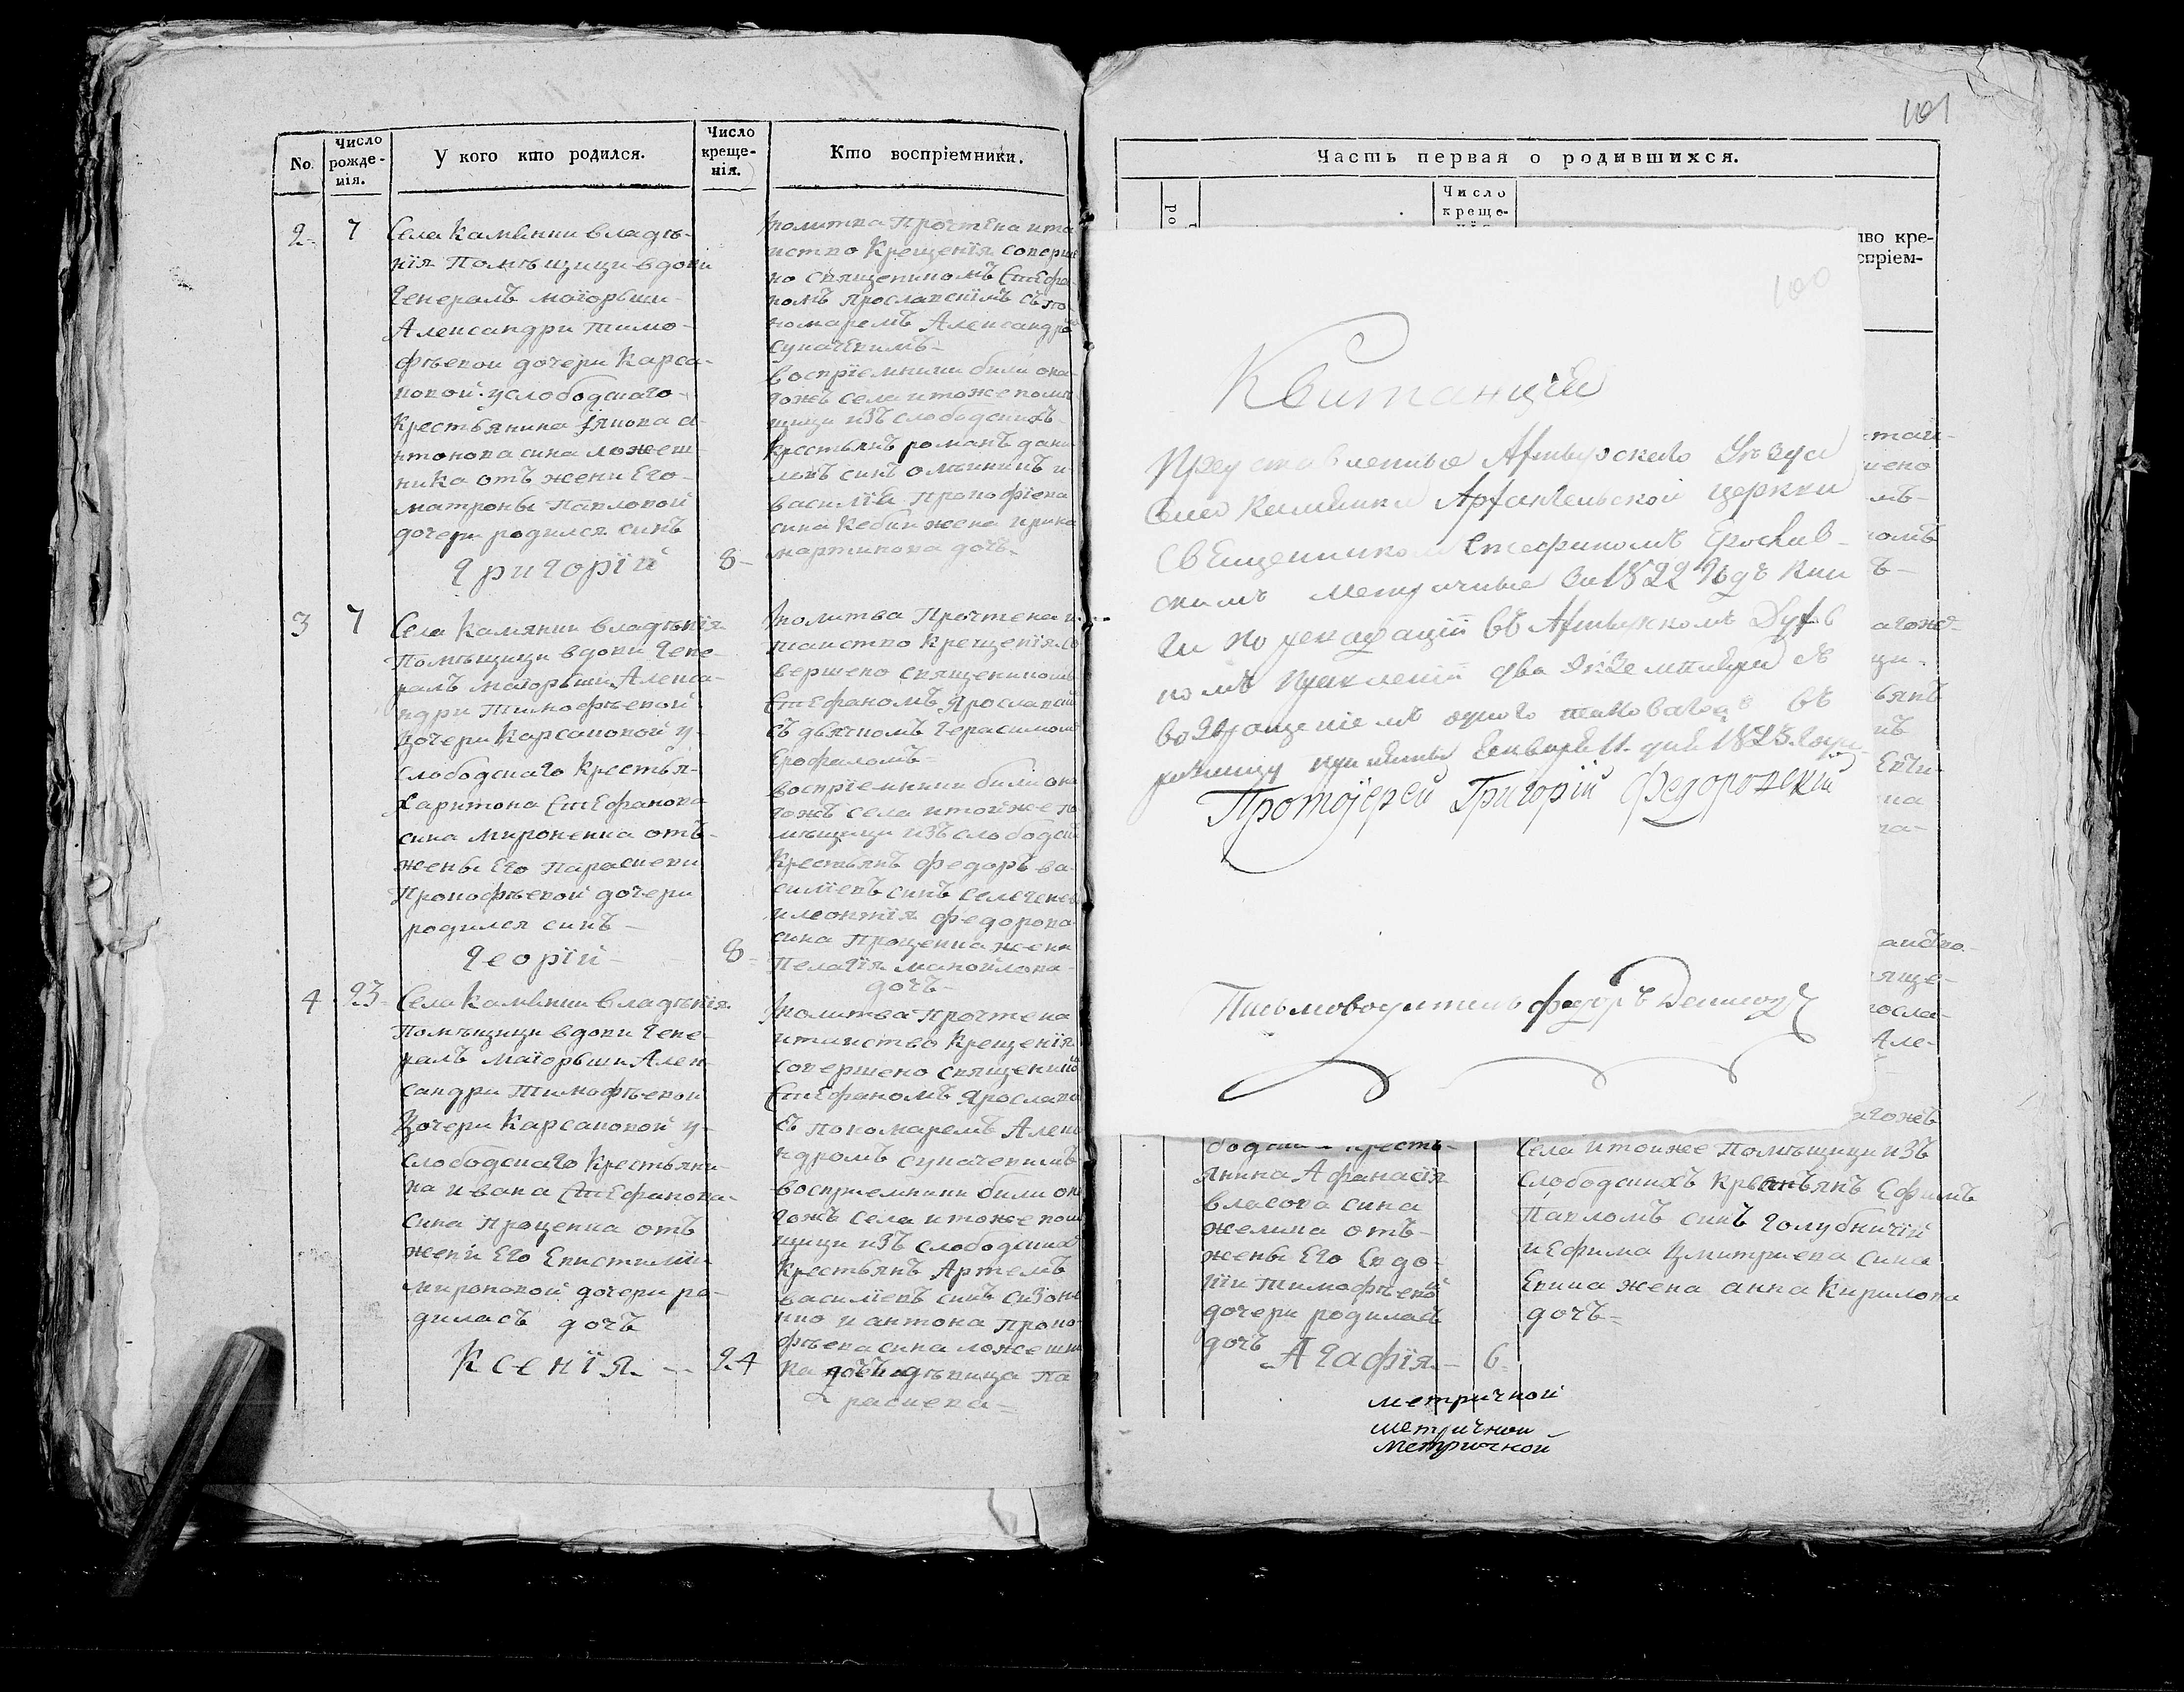 No.
Число рожде- нія.
У кого кто родился.
Число креще- нія.
Кто воспріемники.
2 7
Села Камянки владѣ-
нія Помѣщици вдови
Генералъ маіорьши
Александри тимо-
фѣевои дочери Карса-
ковой у слободскаго
Крестьянина
нтонова сина ложеш-
ника отъ жени Его
матроны Павловой
дочери родился синъ
Григорій 8
молитва Прочтена и та
инство Крещенія соверше
но священикомъ Стефа
номъ Ярославскимъ съ по
номаремъ Александро
воспріемники били она
гожъ села и тоже помѣ
щици изъ слободскихъ
Крестьянъ романъ дани
ловъ синъ и
василия Прокофіева
сина жена ирина
мартинова дочъ
3 7
Села Камянки владѣнія
Помѣщици вдови Гене-
ралъ маіорьши Алекса-
ндри тимофѣевой
Дочери Карсаковой у
слободскаго Крестья-
Харитона Стефанова
сина мироненка отъ
жены Его Параскеви
Прокофѣевой дочери
родился синъ
Георгій 8
молитва Прочтена и
таинство Крещенія со
вершено священикомъ
Стефаномъ Ярославски
съ дьячкомъ Герасимомъ
Ерофаломъ
воспріемники били она
гожъ села и тойже по
мѣщици изъ слободски
Крестьянъ федоръ ва
силіевъ синъ
и леонтія федорова
сина Проценка жена
Пелагія манойлова
дочъ
4 23
Села Камянки владѣнія
Помѣщици вдови Гене-
ралъ маіорьши Алек
сандри тимофѣевои
Дочери Карсаковой у
слободскаго Крестьяни-
на ивана Стефанова
сина Проценка отъ
жени Его Евистиміи
мироновой дочери ро-
диласъ дочъ
Ксенія 24
молитва Прочтена
и таинство Крещенія
совершено священико
Стефаномъ Ярославс
съ пономаремъ Алекса
ндромъ
воспріемники били она
гожъ села и тоже помѣ
щици изъ слободскихъ
Крестьянъ Артемъ
василіевъ синъ сизонен
ко и антона Проко
фѣева сина ложешни
ка дочъ дѣвица Па
раскева
101
Часть первая о родившихся.
Число креще-
иво кре-
спріем-
100
Квитанція
Представленные Ахтырскаго Уѣзда
Села Камянки Архангельской церкви
Священикомъ Стефаномъ Ярослав-
скимъ метричные за 1822 Годъ кни
ги по рекзации въ Ахтырскомъ Духов
номъ Правленіи два экземпляра съ
возвращеніемъ одного таковаго въ
ризницу приняты Генваря 11. дня 1823. года
Протоіерей Григорій Федоровский
Письмоводитель федоръ
Крестъ-
янина Афанасія
власова сина
отъ
жены Его Евдо-
кіи тимофѣевой
дочери родилась
дочъ Агафія 6
села и тоиже Помѣщици изъ
слободскихъ Крестьянъ Ефимъ
Павломъ синъ голубничій
и Ефима Дмитриева сина
жена анна Кирилова
дочъ
метричной
метричной
метричной